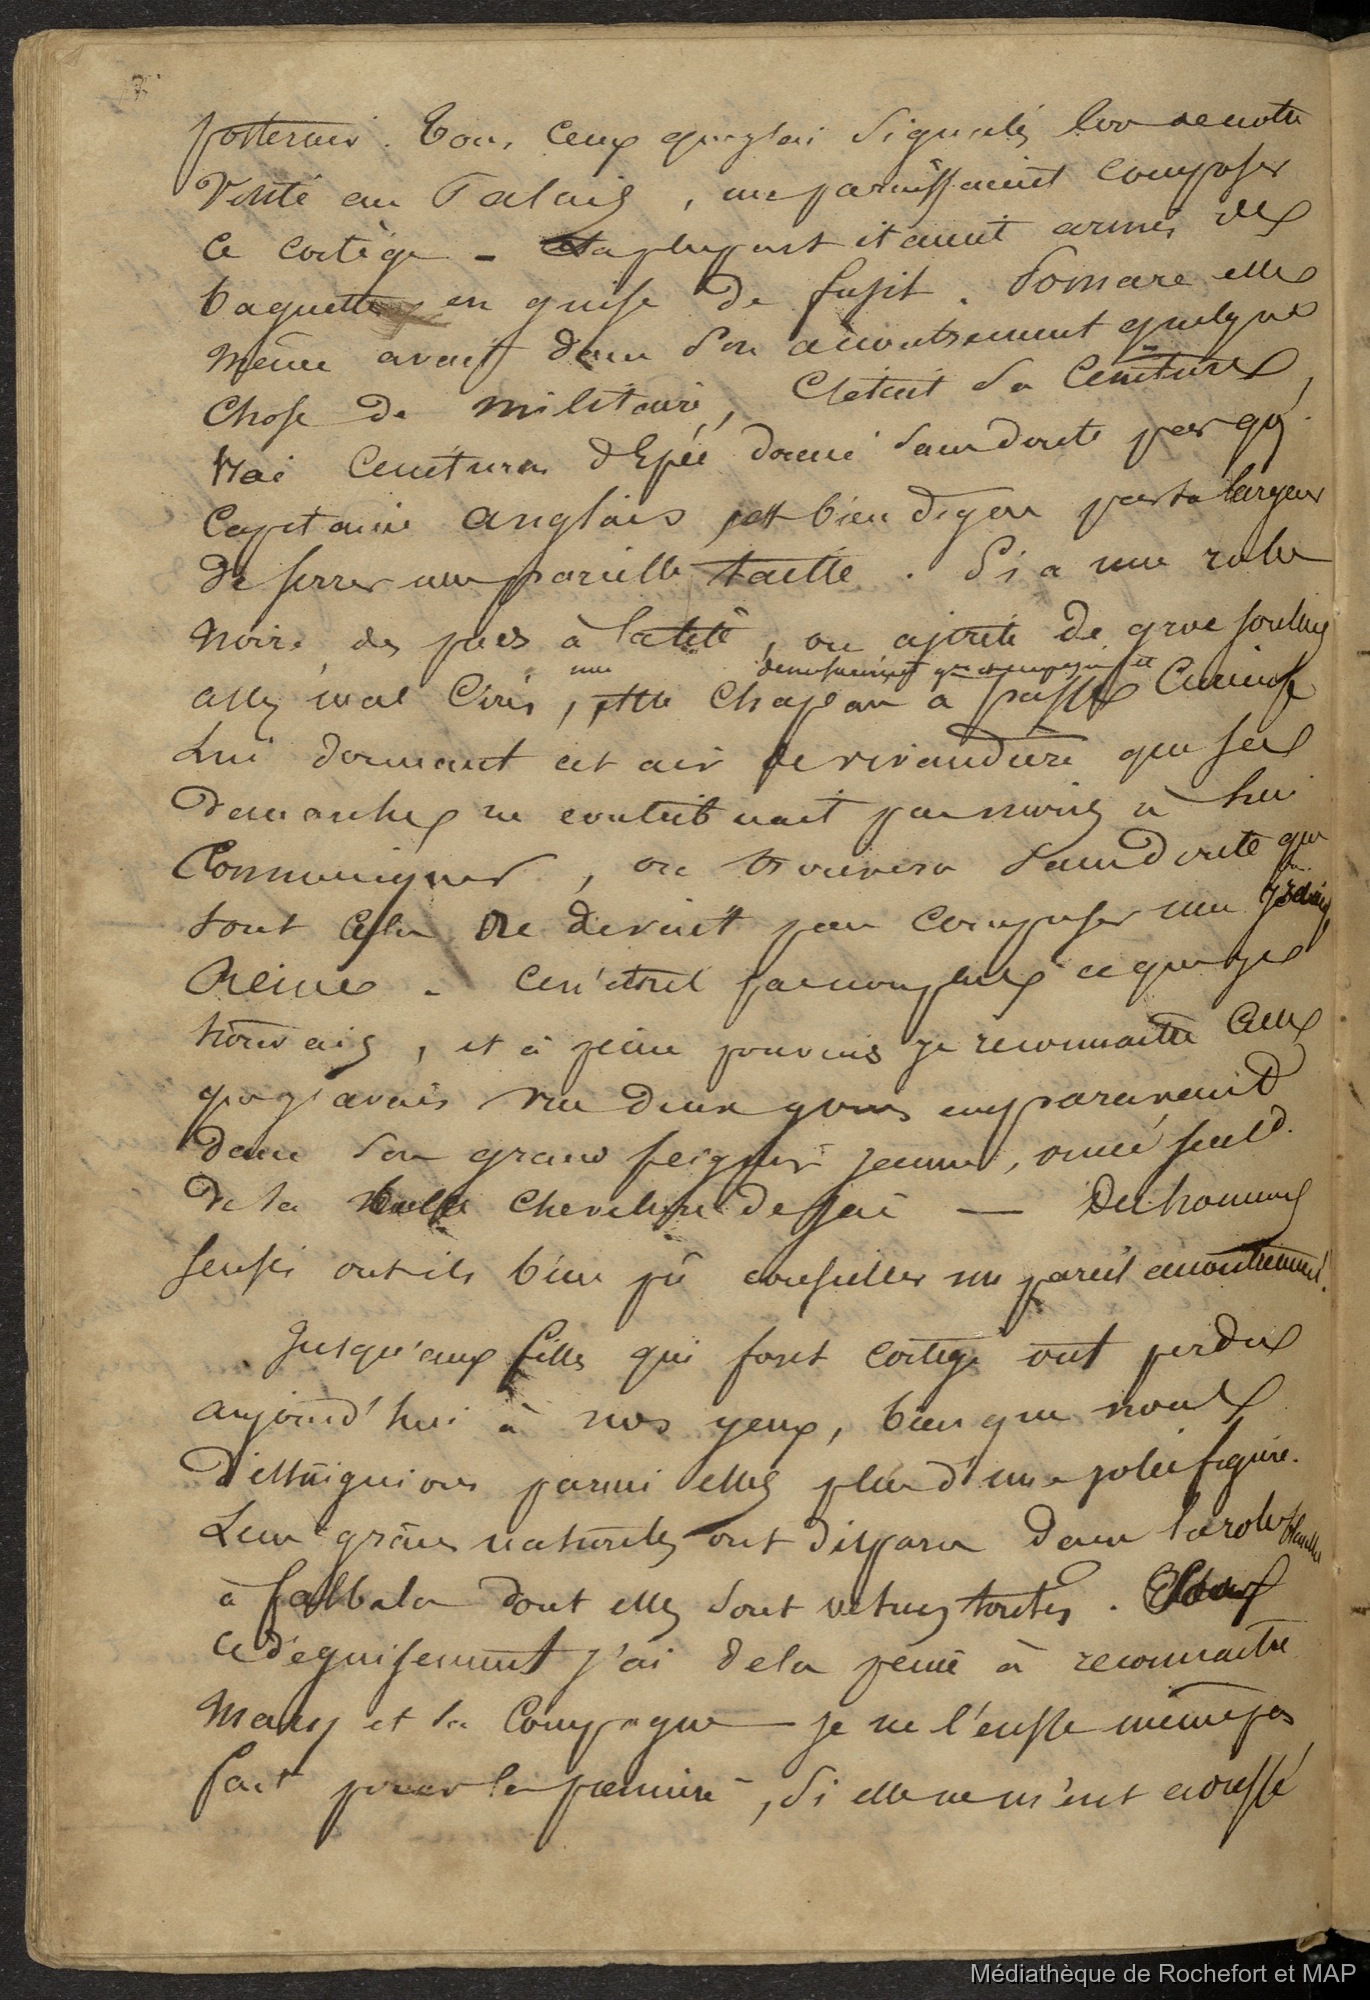 posterieur. Tous ceux que j'ai signalés lors de notre
visite au Palais, me paraissaient composer
ce cortège - la plupart étaient armés de
baguettes en guise de fusil. Pomaré elle
même avait dans son accoutrement quelque
chose de militaire, c'était sa ceinture,
vrai ceinturon d'Epée donné sans doute par qq.
Capitaine anglais et bien digne par sa largeur
de serrer une pareille taille. Si a une robe
noire des pieds à la tête, on ajoute de gros souliers
assez mal cirés, un chapeau à passe curieuse
lui donnant cet air de vivandière que sa
demarche ne contribuait pas moins à lui
Communiquer, on trouvera sans doute que
tout cela ne devait pas composer une
Reine. Ce n'était pas non plus ce que je
trouvais, et à peine pouvais je reconnaitre celle
que j'avais vu deux jours auparavant
dans son grand peignoir jaune, ornée seul.t
de sa belle chevelure de jai — Des hommes
sensés ont ils bien pû conseiller un pareil accoutrement.
Jusqu'aux filles qui font cortège ont perdu
aujourd'hui à nos yeux, bien que nous
distinguions parmi elles plus d'une jolie figure.
Leurs grâces naturelles ont disparu dans la robe blanche
à falbala dont elles sont vetues toutes. Sous
ce déguisement j'ai de la peine à reconnaitre
Mary et sa Compagne — je ne l'eusse même pas
fait pour la première, si elle ne m'eut adressé
Médiathèque de Rochefort et MAP